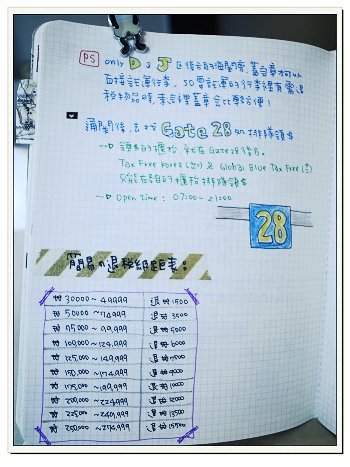 PS only D & J 區後方的海關處,蓋完章才可以
直接託運行李,so 要託運的行李裡有需退
稅物品時,來這裡蓋章會比較方便!
通關後,去找 Gate 28 排隊領$
→ 領$的櫃檯就在Gate 28
Tax Free Korea & Global Blue Tax Free
只能在各自的櫃檯排隊領$
→ Open time : 07:00~21:00
28
簡易の退稅級距表:
₩ 30000~49,999 退 1500
₩ 50000~74,999 退 3500
₩ 75,000~99,999 退 5000
₩ 100,000~124,999 退 6000
₩ 125,000~149,999 退 7500
₩ 150,000~174,999 退 9000
₩ 175,000~199,999 退 10000
₩ 200,000~224,999 退 12000
₩ 225,000~249,999 退 13500
₩ 250,000~274,999 退 15500